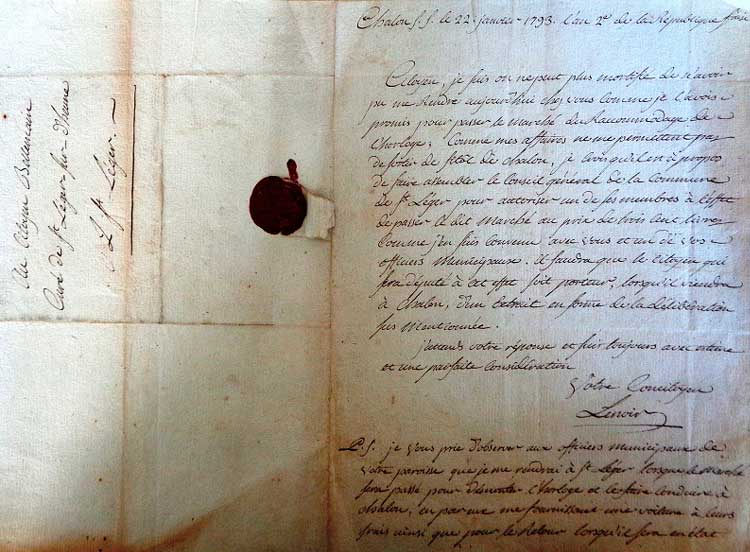 Au Citoyen
Curé de St Léger-sur-Dheune
A St Léger.
Chalon s.s. le 22. janvier 1793. l'an 2e de la République
Citoyen, je suis on ne peut plus mortifié de n'avoir
pu me rendre aujourd'hui chez vous comme je l'avois
promis pour passer le marché du Raccommodage de
l'horloge; Comme mes affaires ne me permettent pas
de sortir de sitôt de chalon, je crois qu'il est à propos
de faire assembler le Conseil général de la Commune
de St Léger pour autoriser un de ses membres à l'effet
de passer le dit Marché au prix de trois cent livres
comme j'en suis convenu avec vous et un de vos
officiers Municipaux. il faudra que le citoyen qui
sera député à cet effet soit porteur, lorsqu'il viendra
à Chalon, d'un extrait en forme de la délibération
sus Mentionnée.
j'attends votre réponse et suis toujours avec estime
et une parfaite considération
Votre Concitoyen
Lenoir
P.S. je vous prie d'observer aux officiers municipaux de
votre paroisse que je me rendrai à St Léger lorsque le marché
sera passé pour démonter l'horloge et le faire conduire à
chalon, en par eux me fournissant une voiture à leurs
frais ainsi que pour le Retour lorsqu'il sera en état